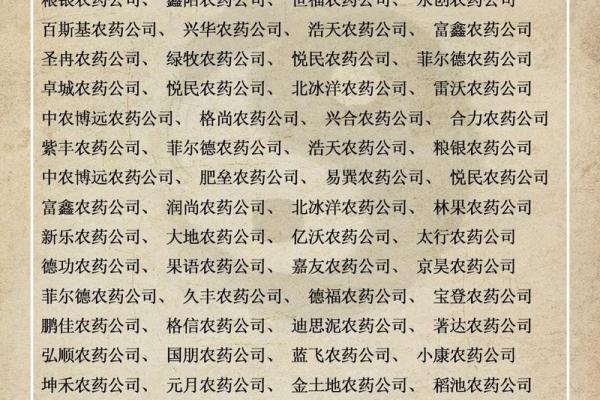 粮银农药公司、 鑫阳农药公司、 恒福农药公司、 永创农药公司
百斯基农药公司、 兴华农药公司、 浩天农药公司、 富鑫农药公司
圣冉农药公司、 绿牧农药公司、 悦民农药公司、 菲尔德农药公司
卓城农药公司、 悦民农药公司、 北冰洋农药公司、 雷沃农药公司
中农博远农药公司、 格尚农药公司、 兴合农药公司、 合力农药公司
紫丰农药公司、 菲尔德农药公司、 浩天农药公司、 粮银农药公司
中农博远农药公司、 肥垒农药公司、 易巽农药公司、 悦民农药公司
富鑫农药公司、 润尚农药公司、 北冰洋农药公司、 林果农药公司
新乐农药公司、 大地农药公司、 亿沃农药公司、 太行农药公司
德功农药公司、 果语农药公司、 嘉友农药公司、 京昊农药公司
菲尔德农药公司、 久丰农药公司、 德福农药公司、 宝登农药公司
鹏佳农药公司、 格信农药公司、 迪思泥农药公司、 著达农药公司
弘顺农药公司、 国朋农药公司、 蓝飞农药公司、 小康农药公司
坤禾农药公司、 元月农药公司、 金土地农药公司、 稻池农药公司